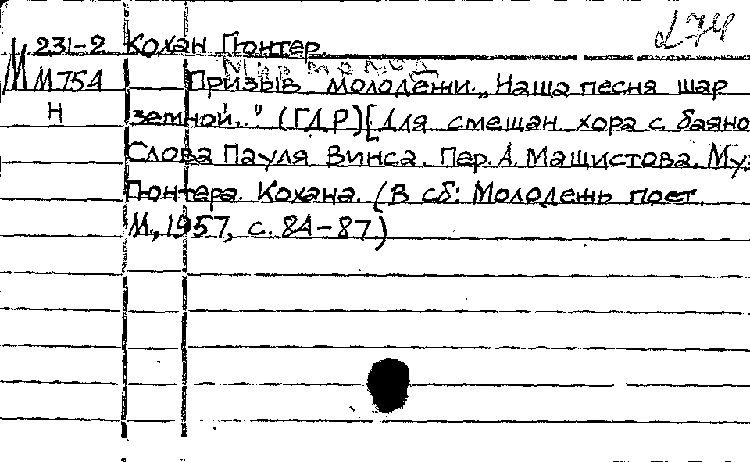 274
М 231-2 Кохан Гюнтер.
М754 Призыв молодежи. „Наша песня шар
Н земной.." (ГДР) [Для смешан хора с баяно
Слова Пауля Винса. Пер. А. Машистова. Муз
Гюнтера Кохана. (В сб: Молодежь поет.
М., 1957, с. 84-87)